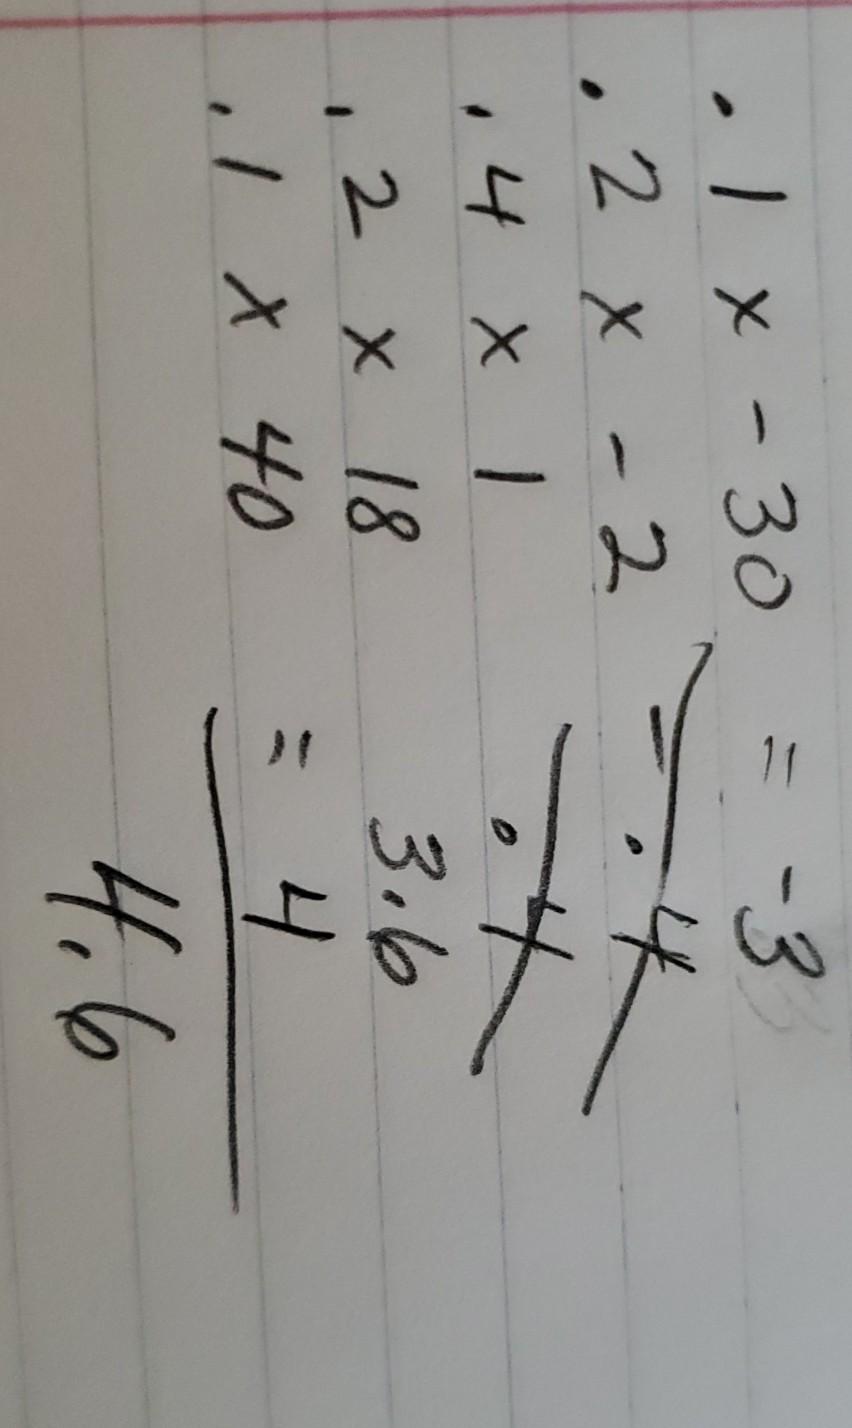 .1 x -30 = -3
.2 x -2 -.4
.4 x 1 .4
.2 x 18 3.6
.1 x 40 = 4
4.6